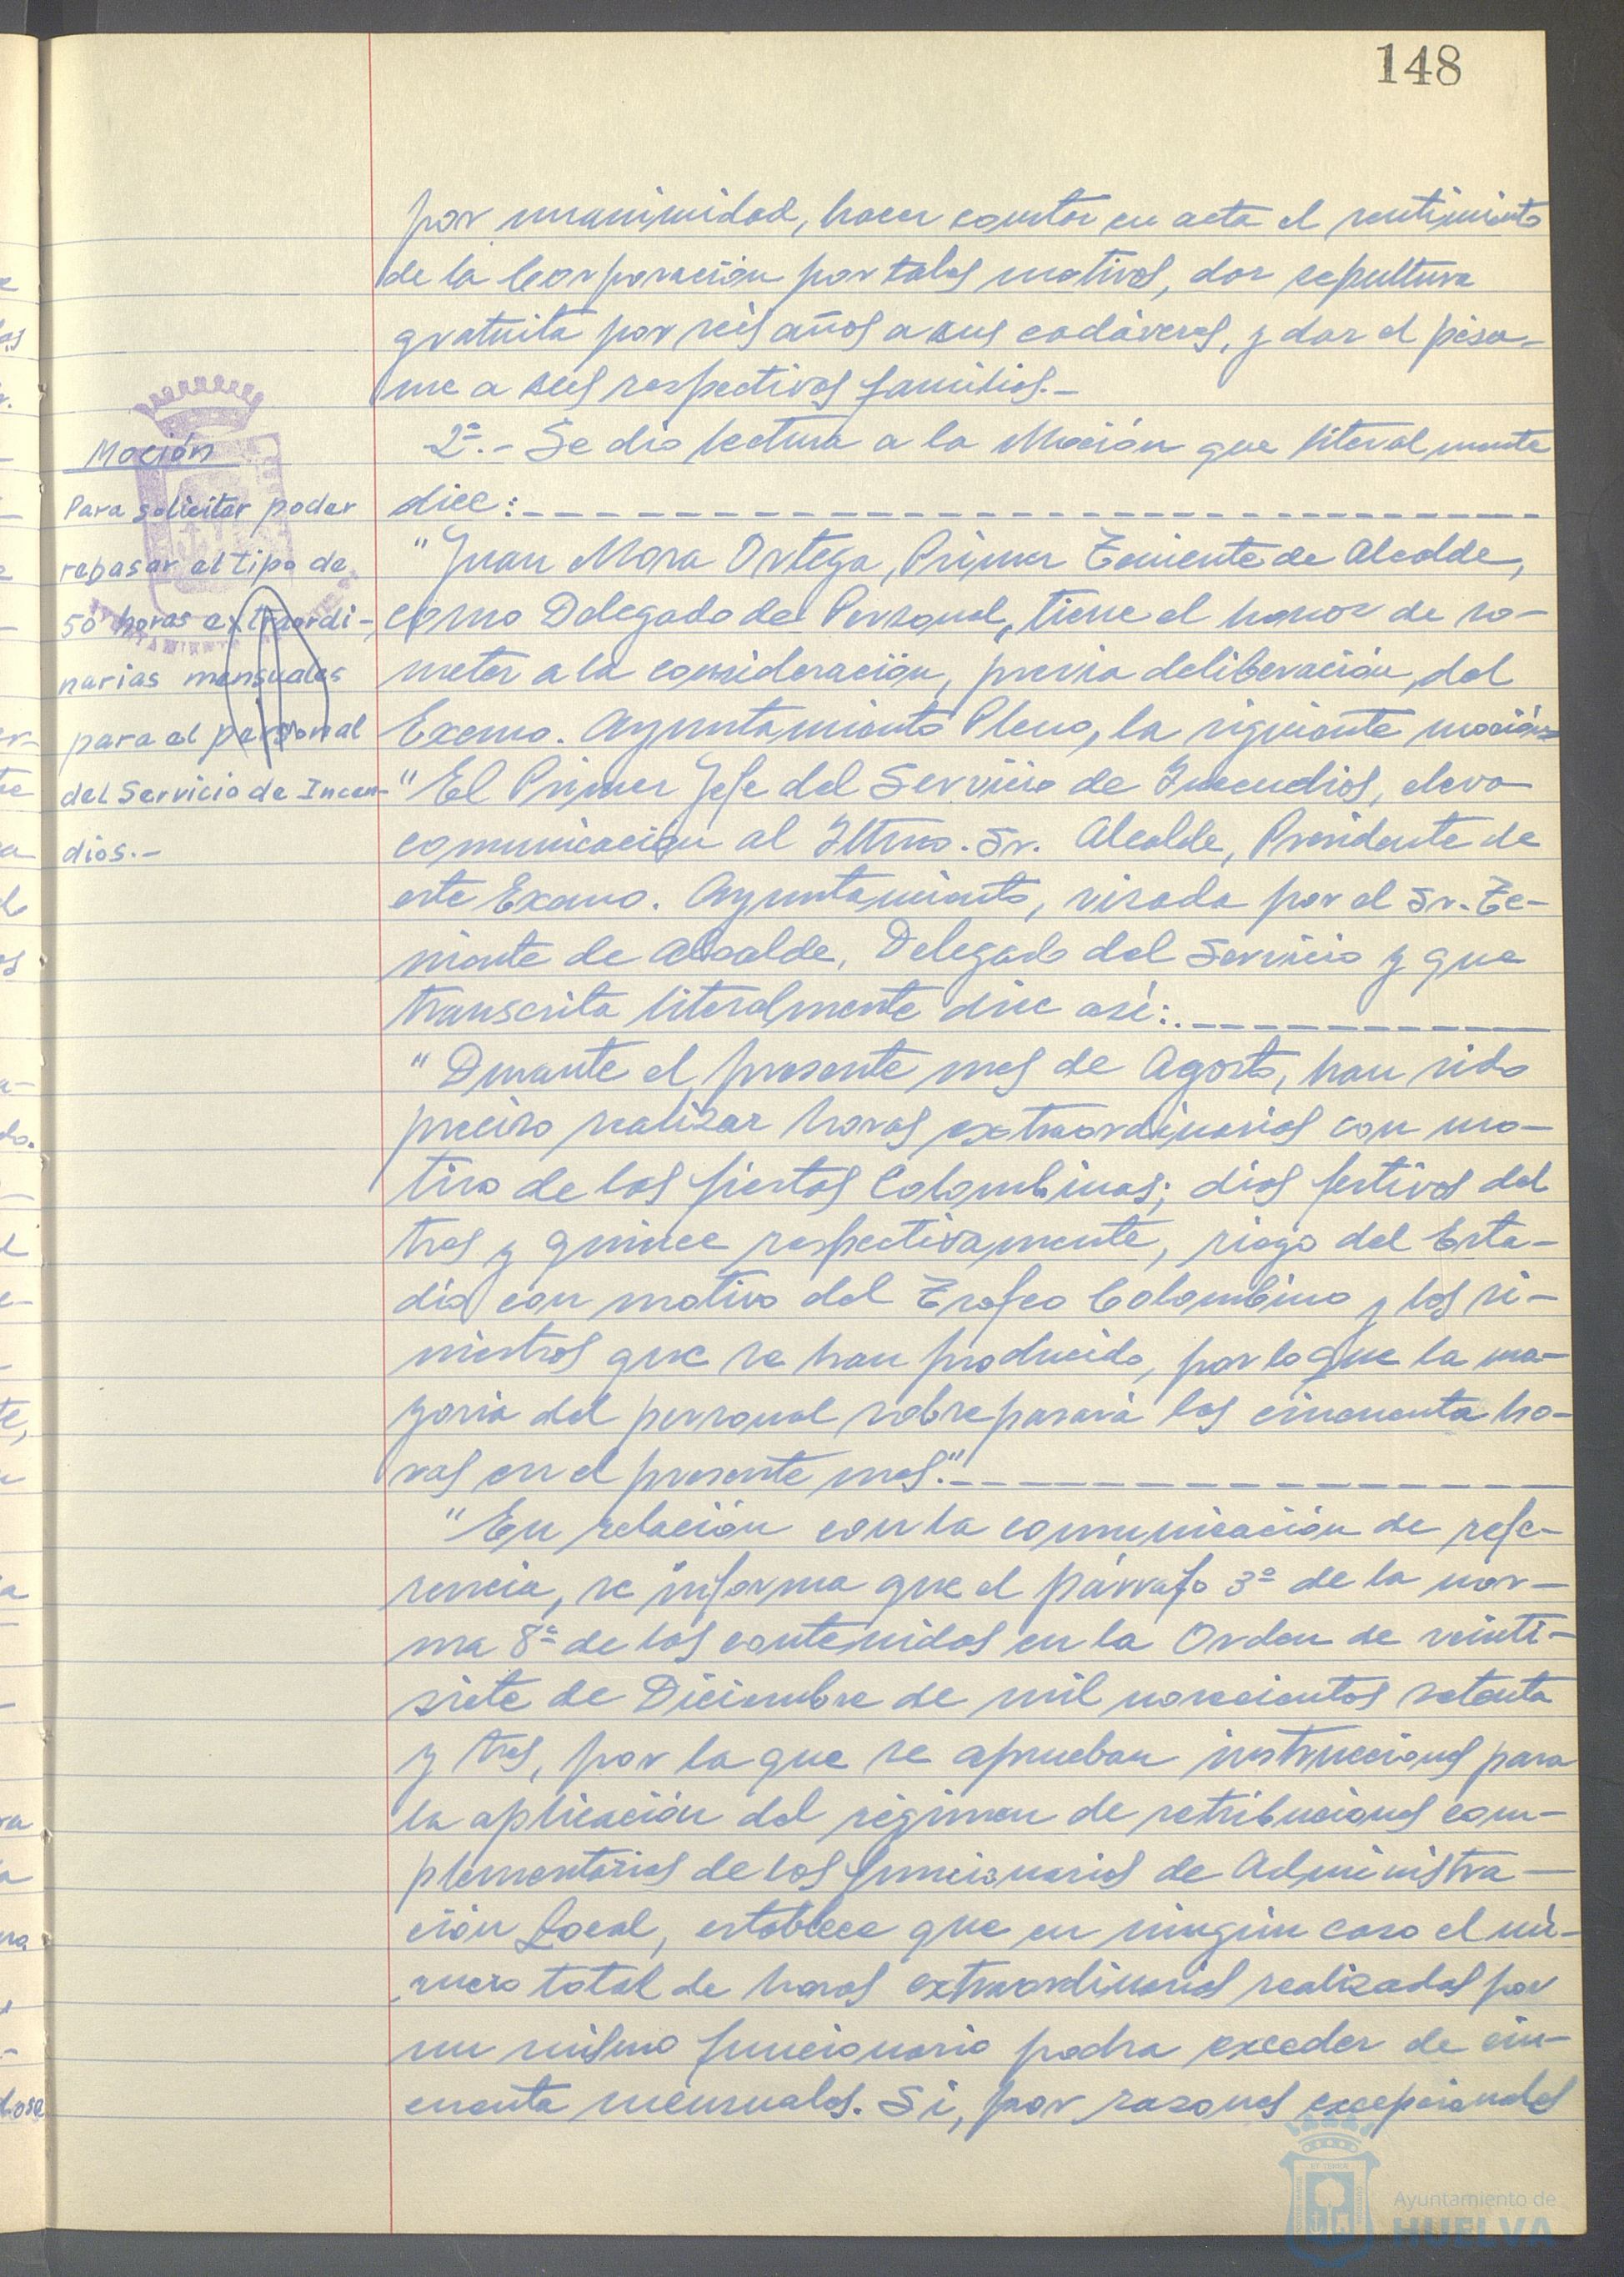 148
por unanimidad, hacer constar en acta el sentimiento
de la Corporación por tales motivos, dar sepultura
gratuita por seis años a sus cadáveres, y dar el pésa-
me a sus respectivas familias.-
2º.- Se dió lectura a la Moción que literalmente
dice:
"Juan Mora Ortega, Primer Teniente de Alcalde,
como Delegado de Personal, tiene el honor de so-
meter a la consideración, previa deliberación, del
Excmo. Ayuntamiento Pleno, la siguiente moción:
"El Primer Jefe del Servicio de Incendios, eleva
comunicación al Iltmo. Sr. Alcalde, Presidente de
este Excmo. Ayuntamiento, visada por el Sr. Te-
niente de Alcalde, Delegado del Servicio y que
transcrita literalmente dice así:
"Durante el presente mes de Agosto, han sido
preciso realizar horas extraordinarias con mo-
tivo de las fiestas Colombinas; días festivos del
tres y quince respectivamente, riego del Esta-
dio con motivo del Trofeo Colombino y los si-
niestros que se han producido, por lo que la ma-
yoria del personal sobrepasará las cincuenta ho-
ras en el presente mes."
"En relación con la comunicación de refe-
rencia, se informa que el párrafo 3º de la nor-
ma 8ª de las contenidas en la Orden de veinti-
siete de Diciembre de mil novecientos setenta
y tres, por la que se aprueban instrucciones para
la aplicación del régimen de retribuciones com-
plementarias de los funcionarios de Administra-
ción Local, establece que en ningún caso el nú-
mero total de horas extraordinarias realizadas por
un mismo funcionario podra exceder de cin-
cuenta mensuales. Si, por razones excepcionales
Moción
Para solicitar poder
rebasar el tipo de
50 horas extraordi-
narias mensuales
para el personal
del Servicio de Incen-
dios.-
Ayuntamiento de
HUELVA